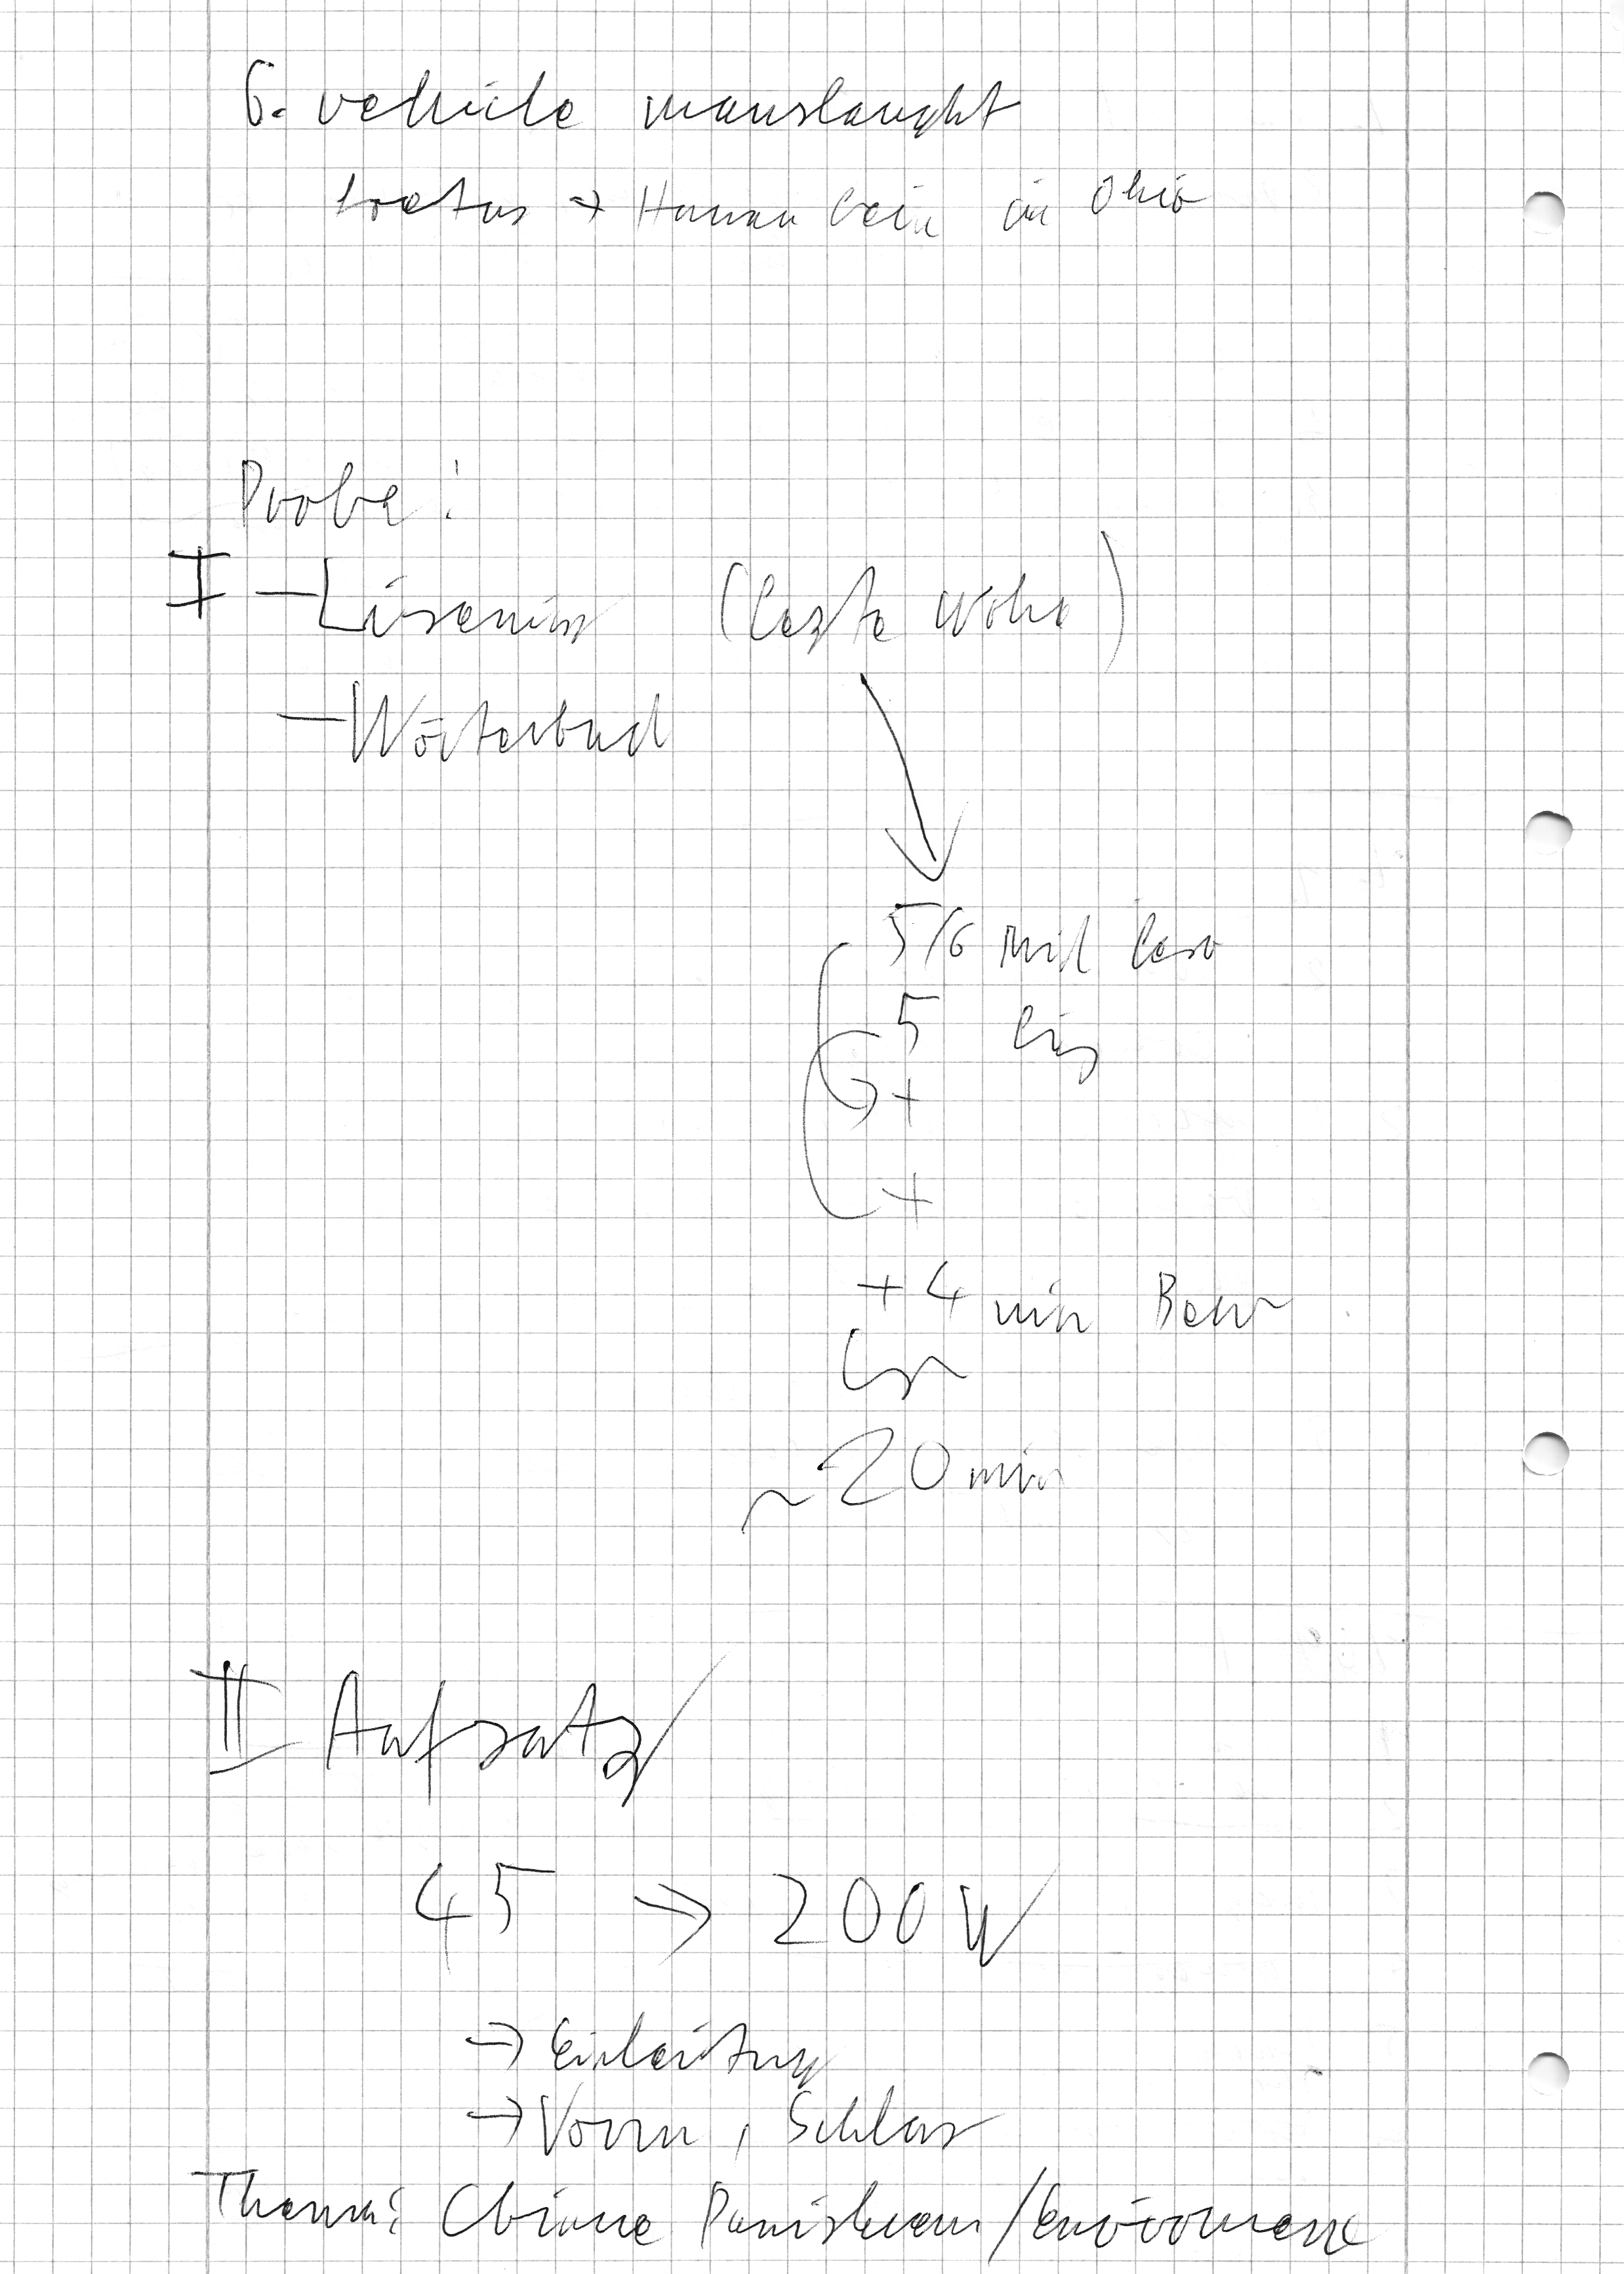 6. vehicle manslaught
foetus → Human bein in Ohio
Probe:
I - Lisening (lezte Wohe)
- Wörterbuch
5/6 min
5
+
+
+ 4 min
~ 20 min
II Aufsatz
45 → 200 W
→ Einleitung
→ Schluss
Thema: Crime Punishmen / Enviroment